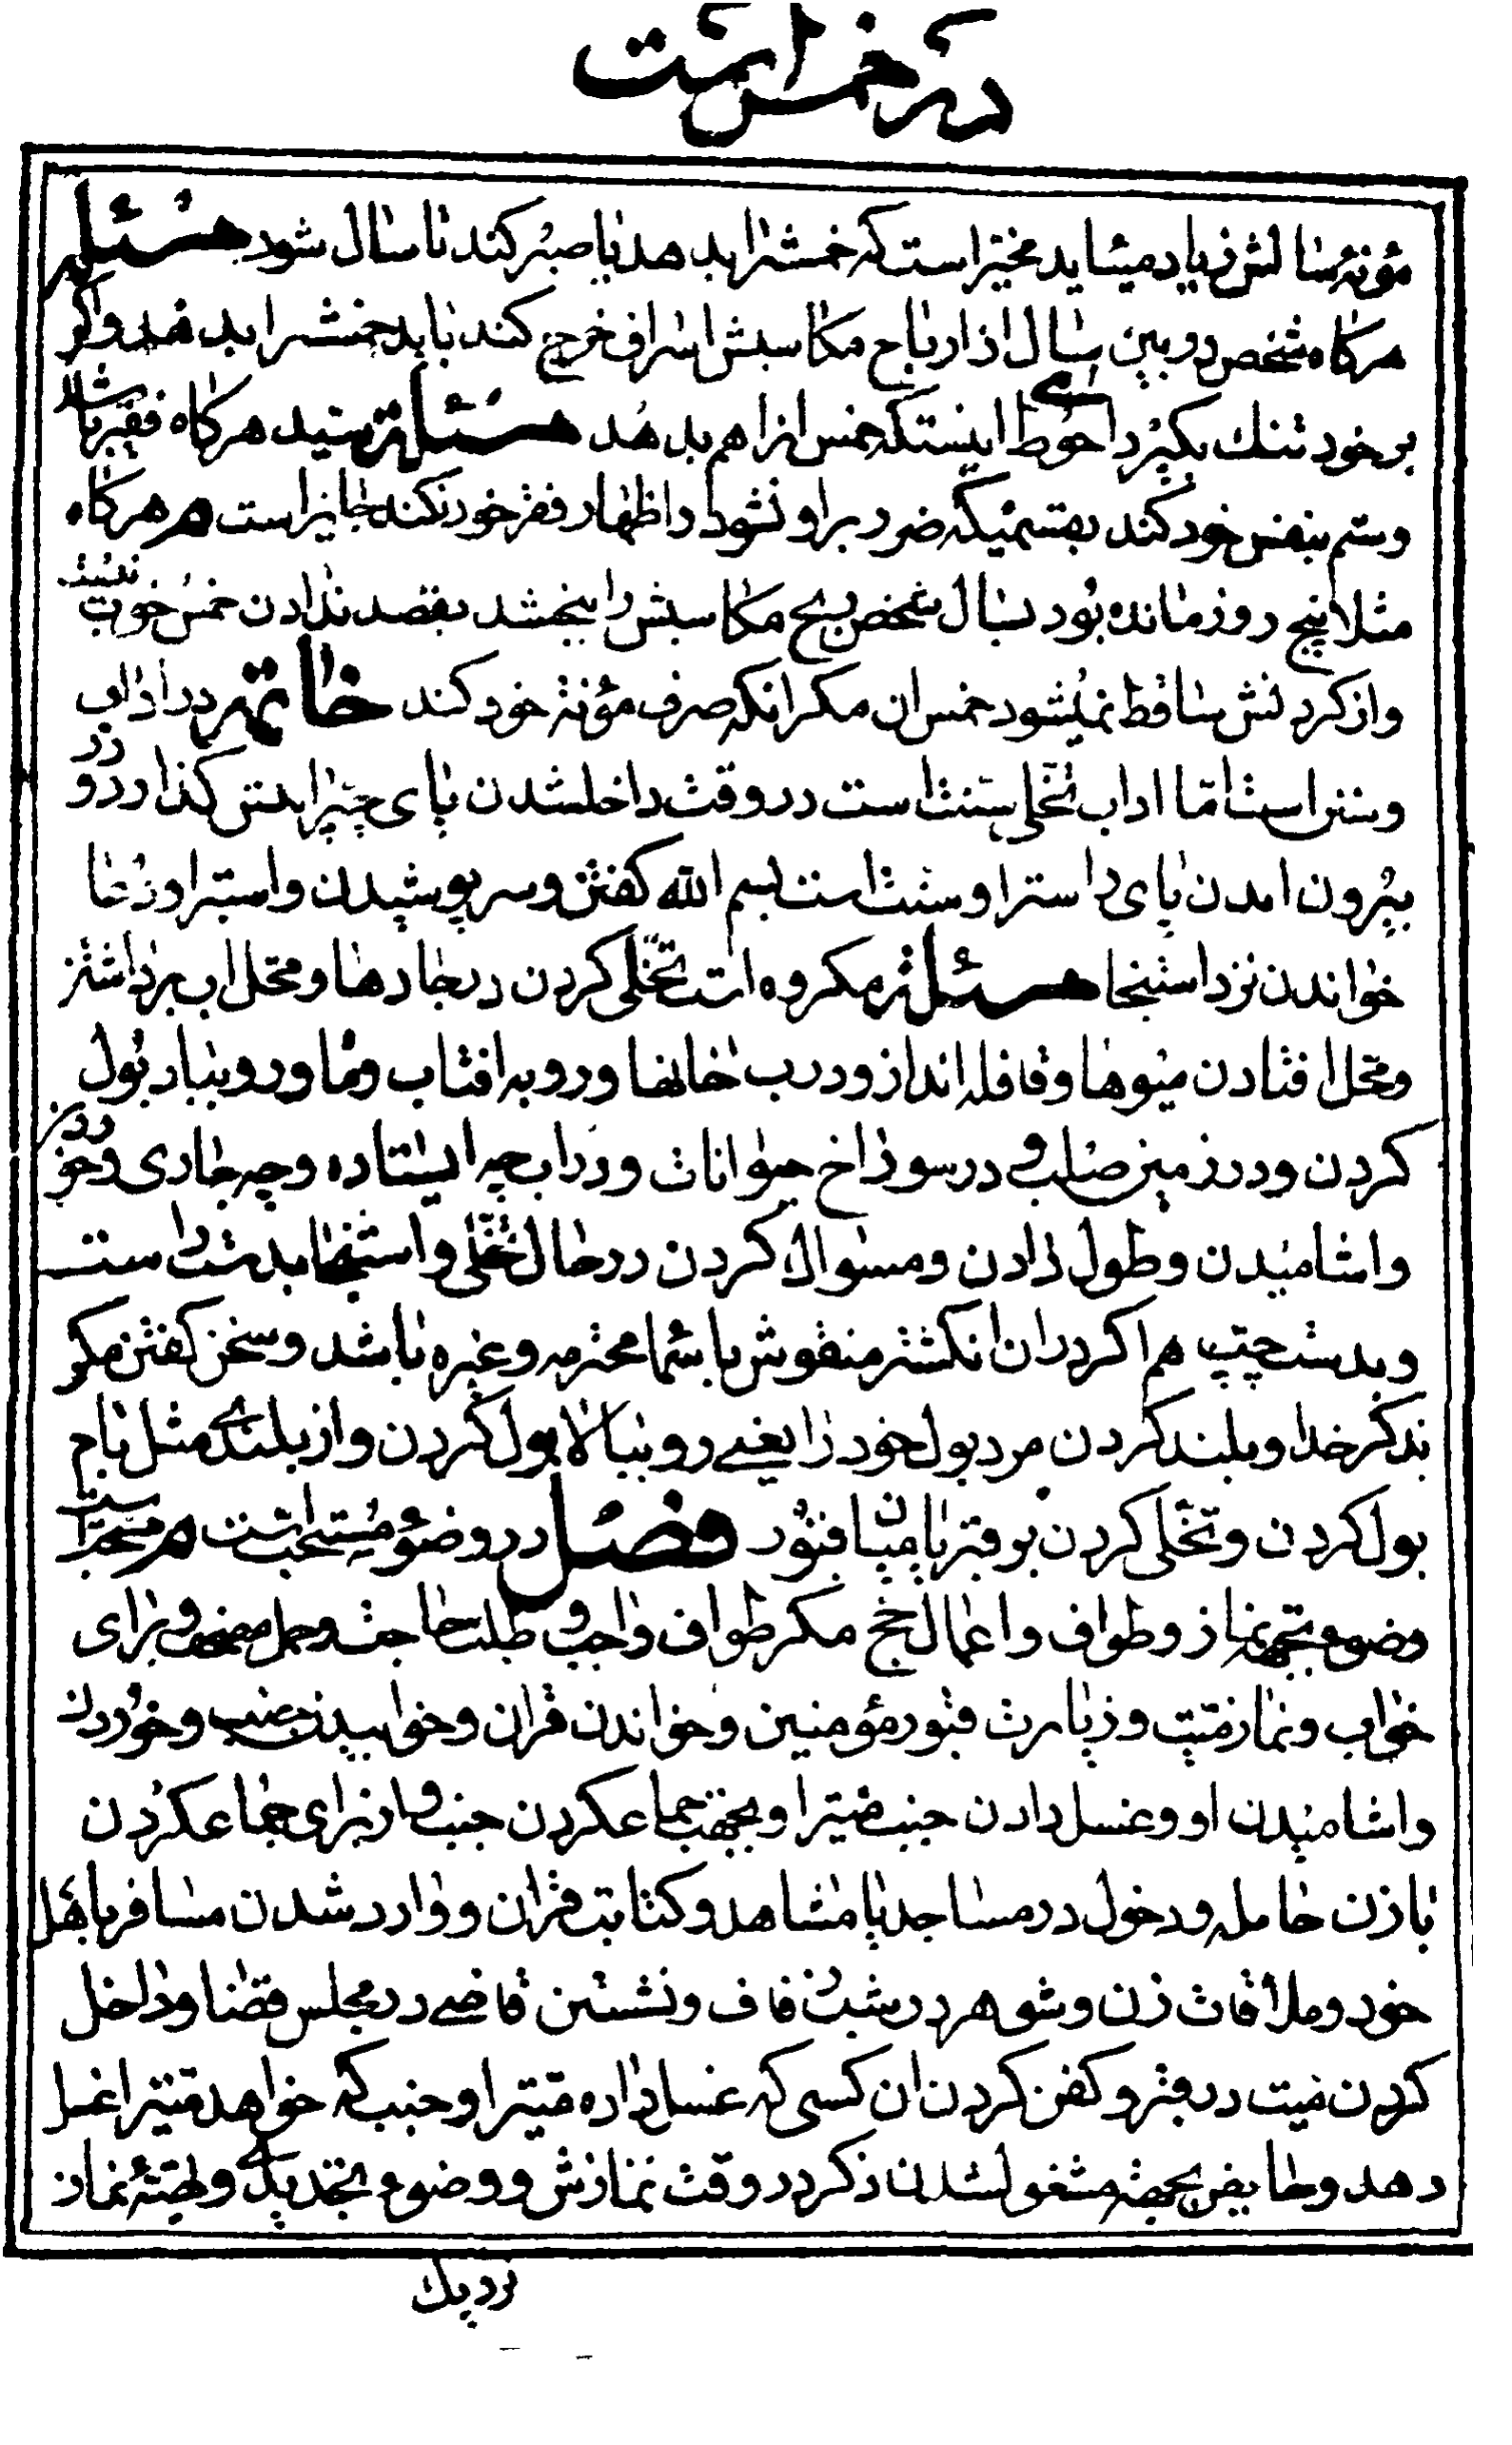 در خمس است
مؤنهٔ سالش زیاد میاید مخیر است که خمشرا بدهد یا صبر کند تا سال شود مسئله
هرگاه شخص در بین سال از ارباح مکاسبش اسراف خرج کند باید خمشرا بدهد و اگر
بر خود تنك بگیرد احوط اینستکه خمس انرا هم بدهد مسئلة سید هرگاه فقیر باشد
وستم بنفس خود کند بقسمیکه ضرر بر او نشود و اظهار فقر خود نکند جایز است م هرگاه
مثلا پنج روز مانده بود بسال شخص ربح مکاسبش را ببخشد بقصد ندادن خمس خوب نیست
و از کردنش ساقط نمیشود خمس ان مکر انکه صرف مؤنهٔ خود کند خاتمه در اداب
و سنن است اما اداب تخلی سنت است در وقت داخلشدن پای چپرا پیش گذارد و در
بیرون امدن پای راسترا و سنت است بسم الله گفتن و سر پوشیدن و استبرا و دعا
خواندن نزد استنجا مسئلة مکروه است تخلی کردن در جادها و محل اب برداشتن
و محل افتادن میوها و قافله انداز و درب خانها و رو به افتاب و ماه و رو بباد بول
کردن و در زمین صلب و در سوراخ حیوانات و در اب چه ایستاده و چه جاری و خوردن
و اشامیدن و طول دادن و مسواك کردن در حال تخلی و استنجا بدست راست
و بدست چپ هم اکر در ان انکشتر منقوش باسماء محترمه و غیره باشد و سخن کفتن مکر
بذکر خدا و بلند کردن مرد بول خود را یعنی رو ببالا بول کردن و از بلندی مثل بام
بول کردن و تخلی کردن بر قبر یا میان قبور فصل در وضوء مستحب است م مستحب است
وضوء بجهة نماز و طواف و اعمال حج مکر طواف واجب و طلب حاجت و حمل مصحف و برای
خواب و نماز میت و زیارت قبور مؤمنین و خواندن قران و خوابیدن جنب و خوردن
و اشامیدن او و غسل دادن جنب میترا و بجهة جماع کردن جنب و از برای جماع کردن
با زن حامله و دخول در مساجد یا مشاهد و کتابت قران و وارد شدن مسافر باهل
خود و ملاقات زن و شوهر در شب زفاف و نشستن قاضی در مجلس قضا و داخل
کردن میت در قبر و کفن کردن ان کسی که غسل داده میترا و جنب که خواهد میترا غسل
دهد و حایض بجهة مشغول شدن ذکر در وقت نمازش و وضوء تجدیدی و تهیهٔ نماز
نزدیك